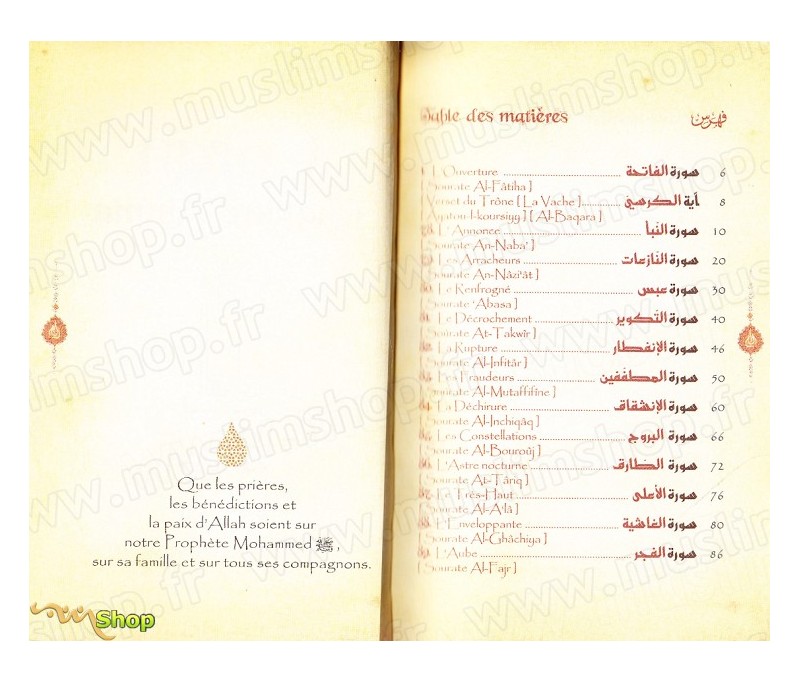 Que les prières,
les bénédictions et
la paix d'Allah soient sur
notre Prophète Mohammed ﷺ,
sur sa famille et sur tous ses compagnons.
Table des matières فهرس
1. L'Ouverture سورة الفاتحة 6
[ Sourate Al-Fâtiha ]
Verset du Trône [ La Vache ] آية الكرسي 8
[ Ayatou-l-koursiyy ] [ Al-Baqara ]
78. L'Annonce سورة النبأ 10
[ Sourate An-Naba' ]
79. Les Arracheurs سورة النازعات 20
[ Sourate An-Nâzi'ât ]
80. Le Renfrogné سورة عبس 30
[ Sourate 'Abasa ]
81. Le Décrochement سورة التكوير 40
[ Sourate At-Takwîr ]
82. La Rupture سورة الإنفطار 46
[ Sourate Al-Infitâr ]
83. Les Fraudeurs سورة المطففين 50
[ Sourate Al-Mutaffifîne ]
84. La Déchirure سورة الإنشقاق 60
[ Sourate Al-Inchiqâq ]
85. Les Constellations سورة البروج 66
[ Sourate Al-Bouroûj ]
86. L'Astre nocturne سورة الطارق 72
[ Sourate At-Târiq ]
87. Le Très-Haut سورة الأعلى 76
[ Sourate Al-A'lâ ]
88. L'Enveloppante سورة الغاشية 80
[ Sourate Al-Ghâchiya ]
89. L'Aube سورة الفجر 86
[ Sourate Al-Fajr ]
www.muslimshop.fr
Shop